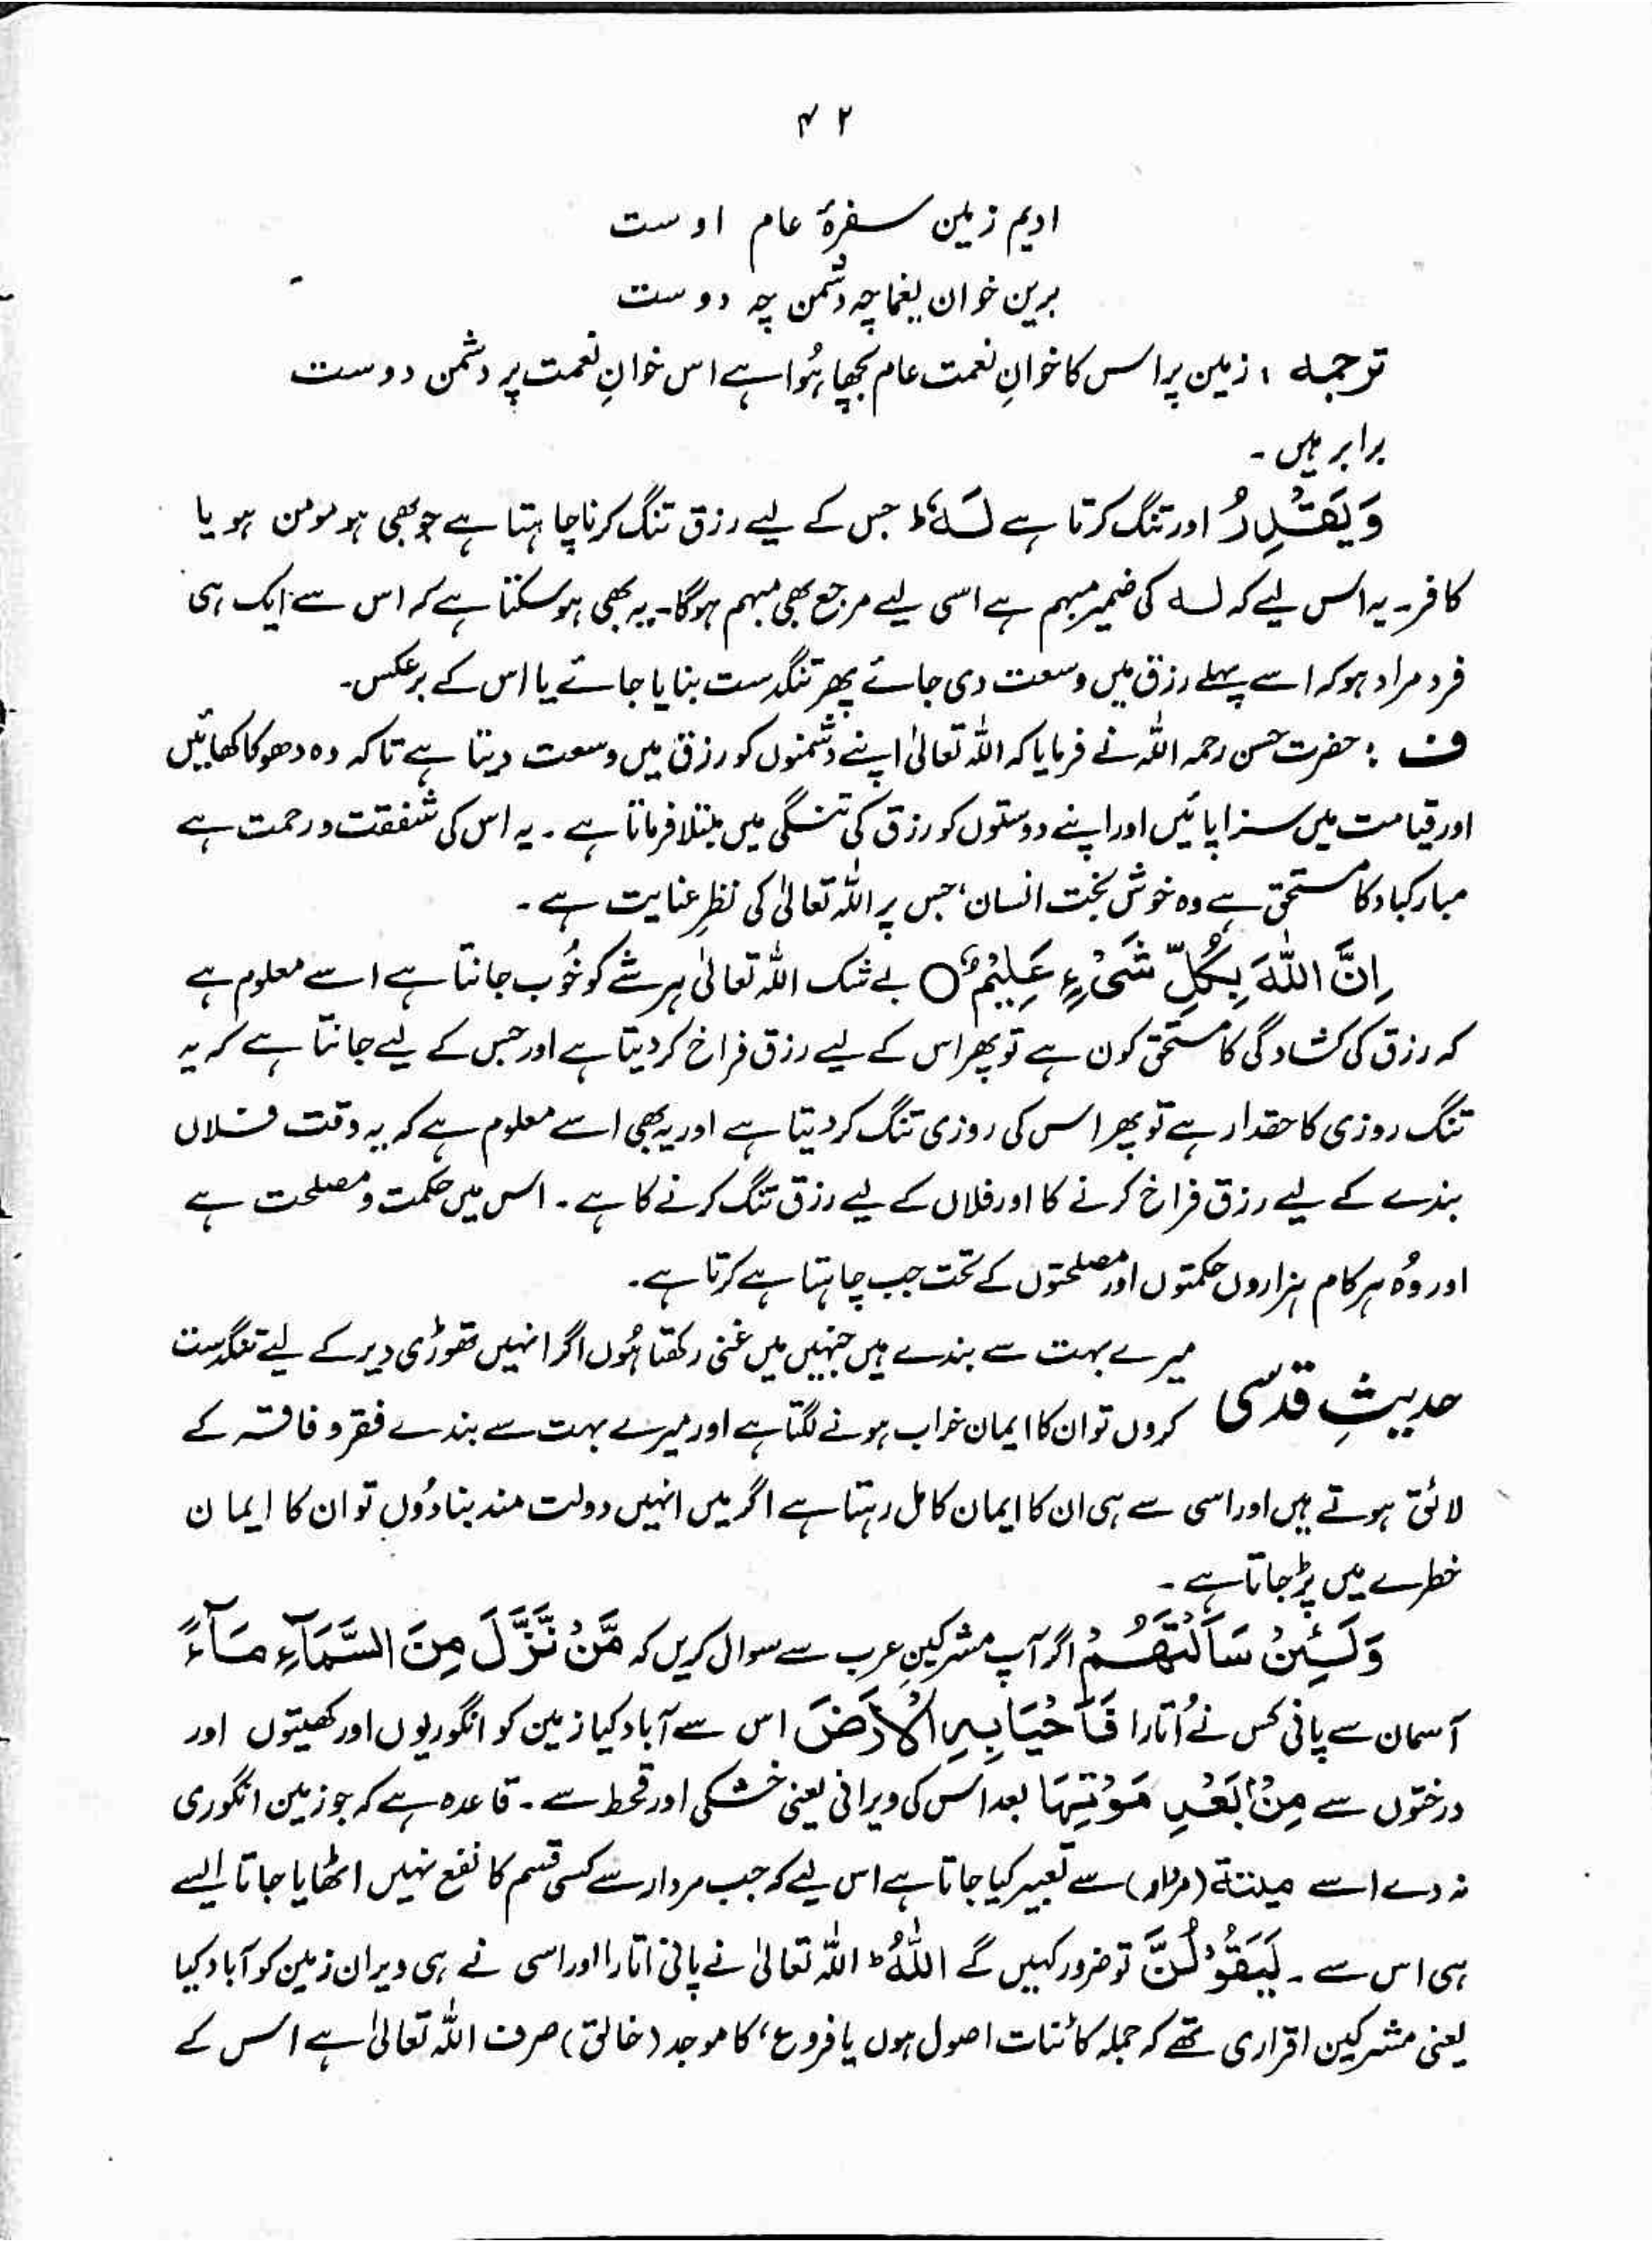 ۴۲
ادیم زمین سفرۂ عام اوست
برین خوان یغما چہ دشمن چہ دوست
ترجمہ : زمین پر اس کا خوانِ نعمت عام بچھا ہُوا ہے اس خوانِ نعمت پر دشمن دوست
برابر ہیں ۔
وَيَقْدِرُ اور تنگ کرتا ہے لَهٗ ؕ جس کے لیے رزق تنگ کرنا چاہتا ہے جو بھی ہو مومن ہو یا
کافر۔ یہ اس لیے کہ لہ کی ضمیر مبہم ہے اسی لیے مرجع بھی مبہم ہوگا۔ یہ بھی ہو سکتا ہے کہ اس سے ایک ہی
فرد مراد ہو کہ اسے پہلے رزق میں وسعت دی جائے پھر تنگدست بنایا جائے یا اس کے برعکس۔
ف : حضرت حسن رحمہ اللہ نے فرمایا کہ اللہ تعالیٰ اپنے دشمنوں کو رزق میں وسعت دیتا ہے تاکہ وہ دھوکا کھائیں
اور قیامت میں سزا پائیں اور اپنے دوستوں کو رزق کی تنگی میں مبتلا فرماتا ہے ۔ یہ اس کی شفقت و رحمت ہے
مبارکباد کا مستحق ہے وہ خوش بخت انسان، جس پر اللہ تعالیٰ کی نظرِ عنایت ہے ۔
اِنَّ اللّٰهَ بِكُلِّ شَیْءٍ عَلِيْمٌ ○ بے شک اللہ تعالیٰ ہر شے کو خُوب جانتا ہے اسے معلوم ہے
کہ رزق کی کشادگی کا مستحق کون ہے تو پھر اس کے لیے رزق فراخ کر دیتا ہے اور جس کے لیے جانتا ہے کہ یہ
تنگ روزی کا حقدار ہے تو پھر اس کی روزی تنگ کر دیتا ہے اور یہ بھی اسے معلوم ہے کہ یہ وقت فلاں
بندے کے لیے رزق فراخ کرنے کا اور فلاں کے لیے رزق تنگ کرنے کا ہے ۔ اس میں حکمت و مصلحت ہے
اور وُہ ہر کام ہزاروں حکمتوں اور مصلحتوں کے تحت جب چاہتا ہے کرتا ہے ۔
میرے بہت سے بندے ہیں جنہیں میں غنی رکھتا ہُوں اگر انہیں تھوڑی دیر کے لیے تنگدست
حدیثِ قدسی کروں تو ان کا ایمان خراب ہونے لگتا ہے اور میرے بہت سے بندے فقر و فاقہ کے
لائق ہوتے ہیں اور اسی سے ہی ان کا ایمان کامل رہتا ہے اگر میں انہیں دولت مند بنا دُوں تو ان کا ایمان
خطرے میں پڑ جاتا ہے ۔
وَلَئِنْ سَاَلْتَهُمْ اگر آپ مشرکینِ عرب سے سوال کریں کہ مَّنْ نَّزَّلَ مِنَ السَّمَآءِ مَآءً
آسمان سے پانی کس نے اُتارا فَاَحْيَا بِهِ الْاَرْضَ اس سے آباد کیا زمین کو انگوریوں اور کھیتوں اور
درختوں سے مِنْۢ بَعْدِ مَوْتِهَا بعد اس کی ویرانی یعنی خشکی اور قحط سے ۔ قاعدہ ہے کہ جو زمین انگوری
نہ دے اسے میتة (مردار) سے تعبیر کیا جاتا ہے اس لیے کہ جب مردار سے کسی قسم کا نفع نہیں اٹھایا جاتا ایسے
ہی اس سے ۔ لَيَقُوْلُنَّ تو ضرور کہیں گے اللّٰهُ ؕ اللہ تعالیٰ نے پانی اتارا اور اسی نے ہی ویران زمین کو آباد کیا
یعنی مشرکین اقراری تھے کہ جملہ کائنات اصول ہوں یا فروع، کا موجد (خالق) صرف اللہ تعالیٰ ہے اس کے